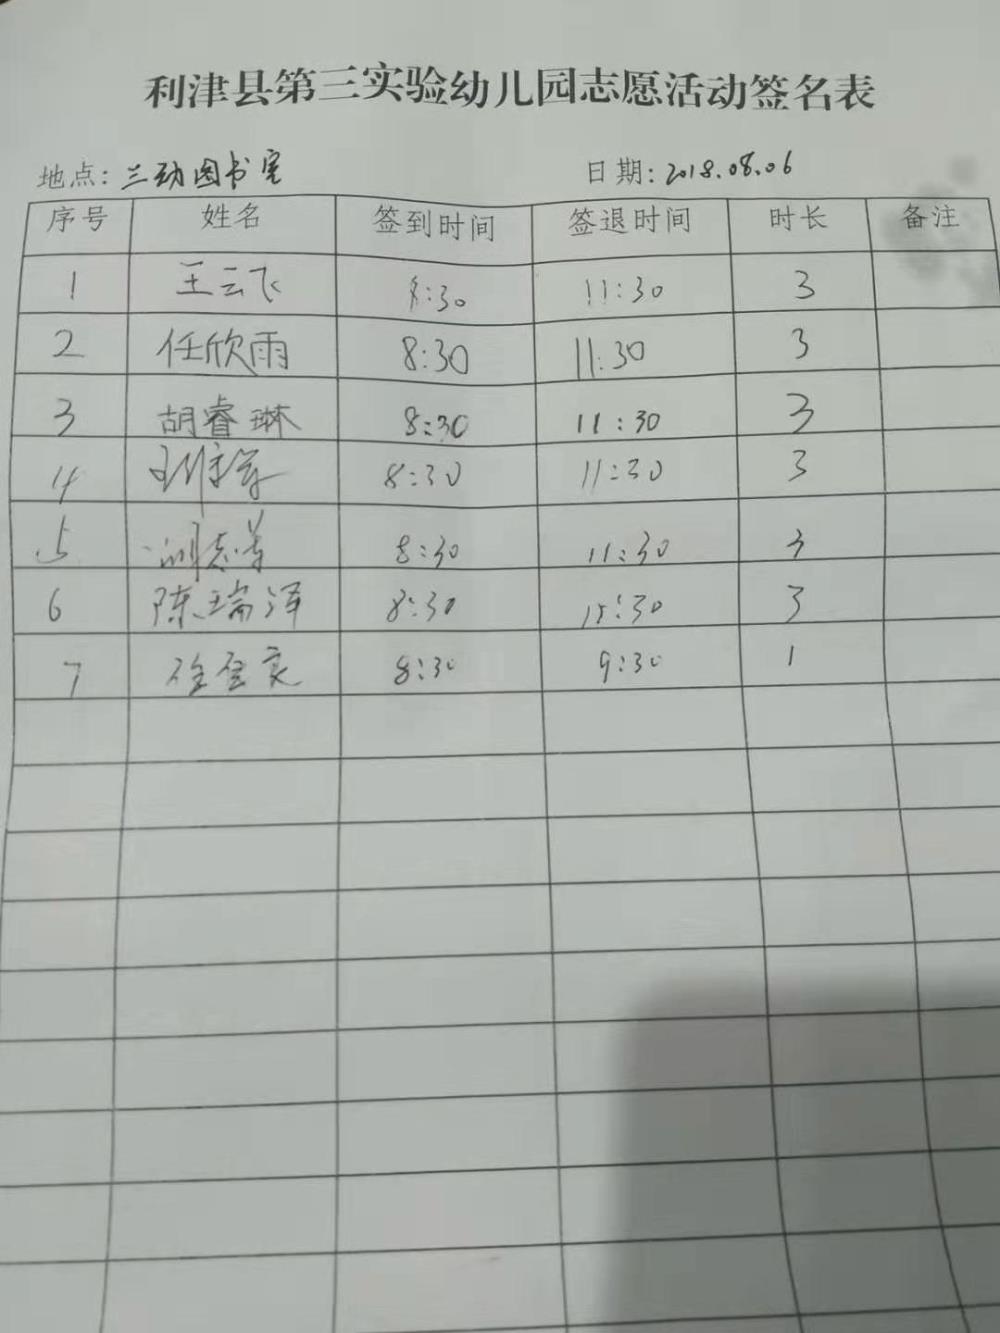 利津县第三实验幼儿园志愿活动签名表
地点：三幼图书室 日期：2018.08.06
序号 姓名 签到时间 签退时间 时长 备注
1 王云飞 8:30 11:30 3
2 任欣雨 8:30 11:30 3
3 胡睿琳 8:30 11:30 3
4 8:30 11:30 3
5 8:30 11:30 3
6 陈瑞泽 8:30 3
7 8:30 9:30 1